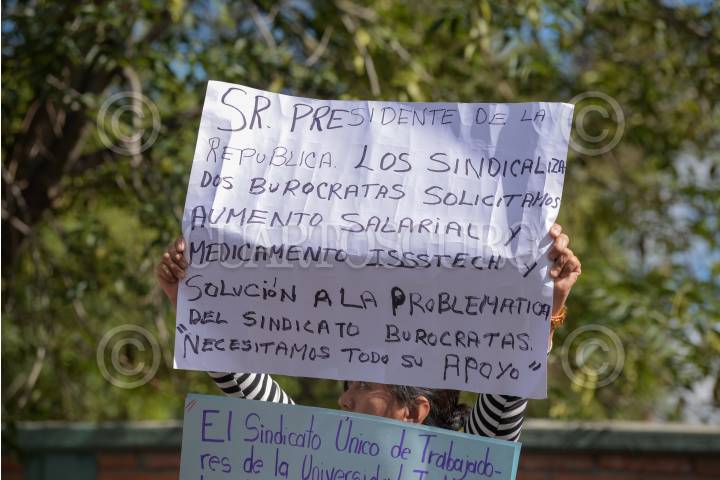 SR. PRESIDENTE DE LA
REPUBLICA. LOS SINDICALIZA
DOS BUROCRATAS SOLICITAMOS
AUMENTO SALARIAL Y
MEDICAMENTO ISSSTECH Y
SOLUCIÓN A LA PROBLEMATICA
DEL SINDICATO BUROCRATAS.
"NECESITAMOS TODO SU APOYO"
El Sindicato Único de Trabajado-
res de la Universidad